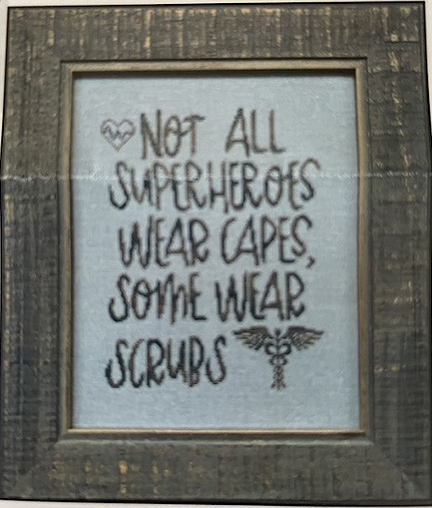 NOT ALL
SUPERHEROES
WEAR CAPES,
SOME WEAR
SCRUBS